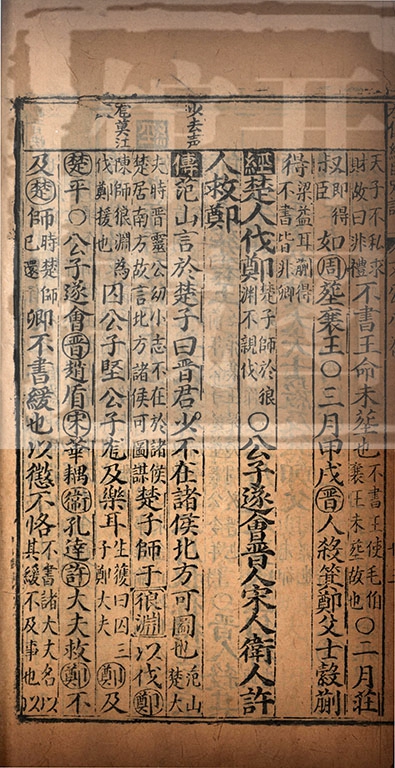 天子不私求財故曰非禮不書王命未塟也不書王使毛伯襄王未塟故也○二月莊
叔即得臣如周塟襄王○三月甲戌晋人殺箕鄭父士縠蒯
得梁益耳蒯得不書皆非卿
經楚人伐鄭楚子師於狼淵不親伐○公子遂會晉人宋人衛人許
人救鄭
少去声
傳范山言於楚子曰晉君少不在諸侯北方可圖也范山楚大
夫時晋靈公幼小志不在於諸侯楚居南方故言北方諸侯可圖謀楚子師于狼淵以伐鄭
尨莫江
陳師狼淵為伐鄭援也囚公子堅公子尨及樂耳生獲曰囚三子鄭大夫鄭及
楚平○公子遂會晋趙盾宋華耦衛孔達許大夫救鄭不
及楚師時楚師已還卿不書緩也以懲不恪不書諸大夫名以其緩不及事也以